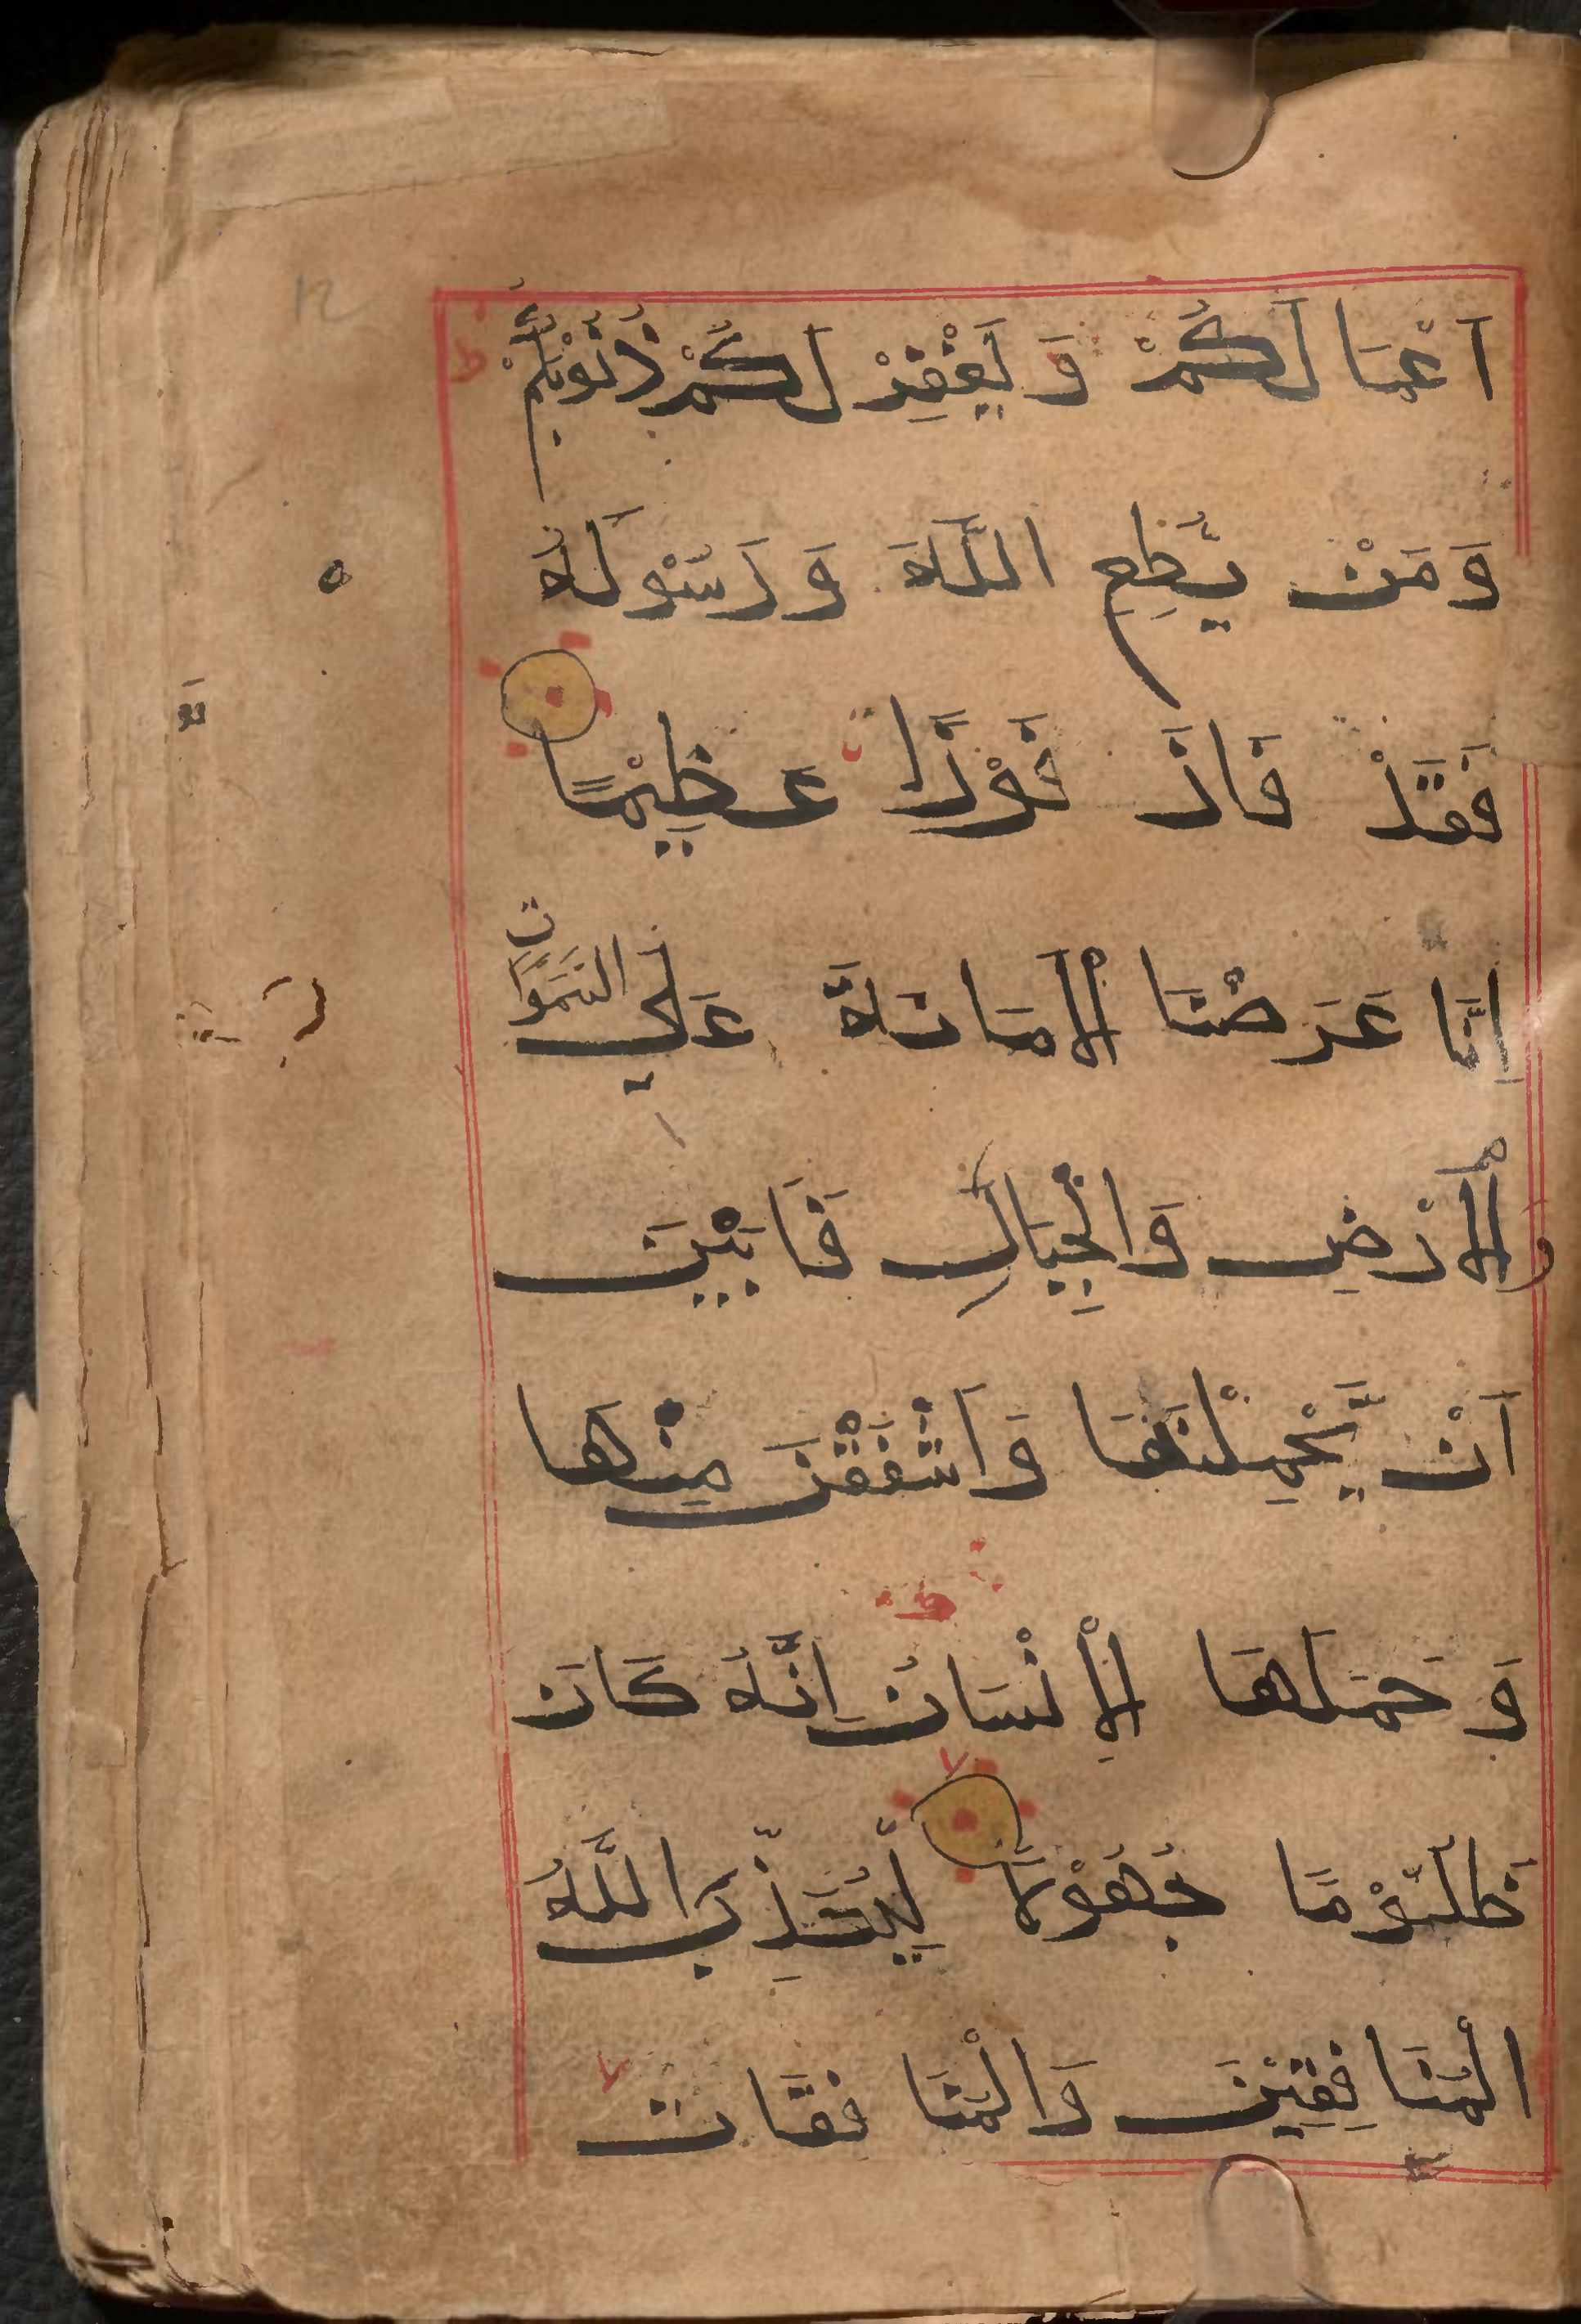 اَعْمَالَكُمْ وَيَغْفِرْ لَكُمْ ذُنُوْبَكُمْ ط
وَمَنْ يُّطِعِ اللّٰهَ وَرَسُوْلَهٗ
فَقَدْ فَازَ فَوْزًا عَظِيْمًا
اِنَّا عَرَضْنَا الْاَمَانَةَ عَلَى السَّمٰوَاتِ
وَالْاَرْضِ وَالْجِبَالِ فَاَبَيْنَ
اَنْ يَّحْمِلْنَهَا وَاَشْفَقْنَ مِنْهَا
وَحَمَلَهَا الْاِنْسَانُ ط اِنَّهٗ كَانَ
ظَلُوْمًا جَهُوْلًا لا لِّيُعَذِّبَ اللّٰهُ
الْمُنَافِقِيْنَ وَالْمُنَافِقَاتِ لا
12